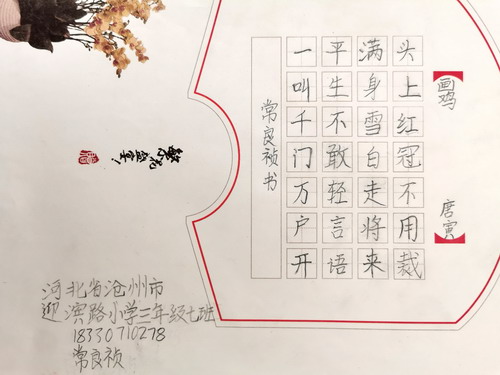 画鸡
唐寅
头上红冠不用裁
满身雪白走将来
平生不敢轻言语
一叫千门万户开
常良祯书
河北省沧州市
迎滨路小学三年级七班
18330710278
常良祯